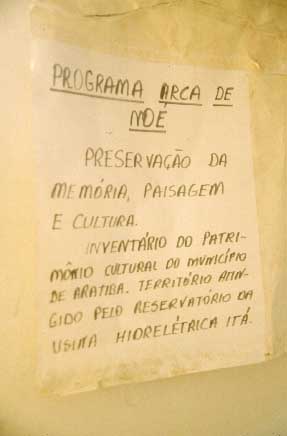 PROGRAMA ARCA DE
NOÉ
PRESERVAÇÃO DA
MEMÓRIA, PAISAGEM
E CULTURA.
INVENTÁRIO DO PATRI-
MÔNIO CULTURAL DO MUNICÍPIO
DE ARATIBA. TERRITÓRIO ATIN-
GIDO PELO RESERVATÓRIO DA
USINA HIDRELÉTRICA ITÁ.